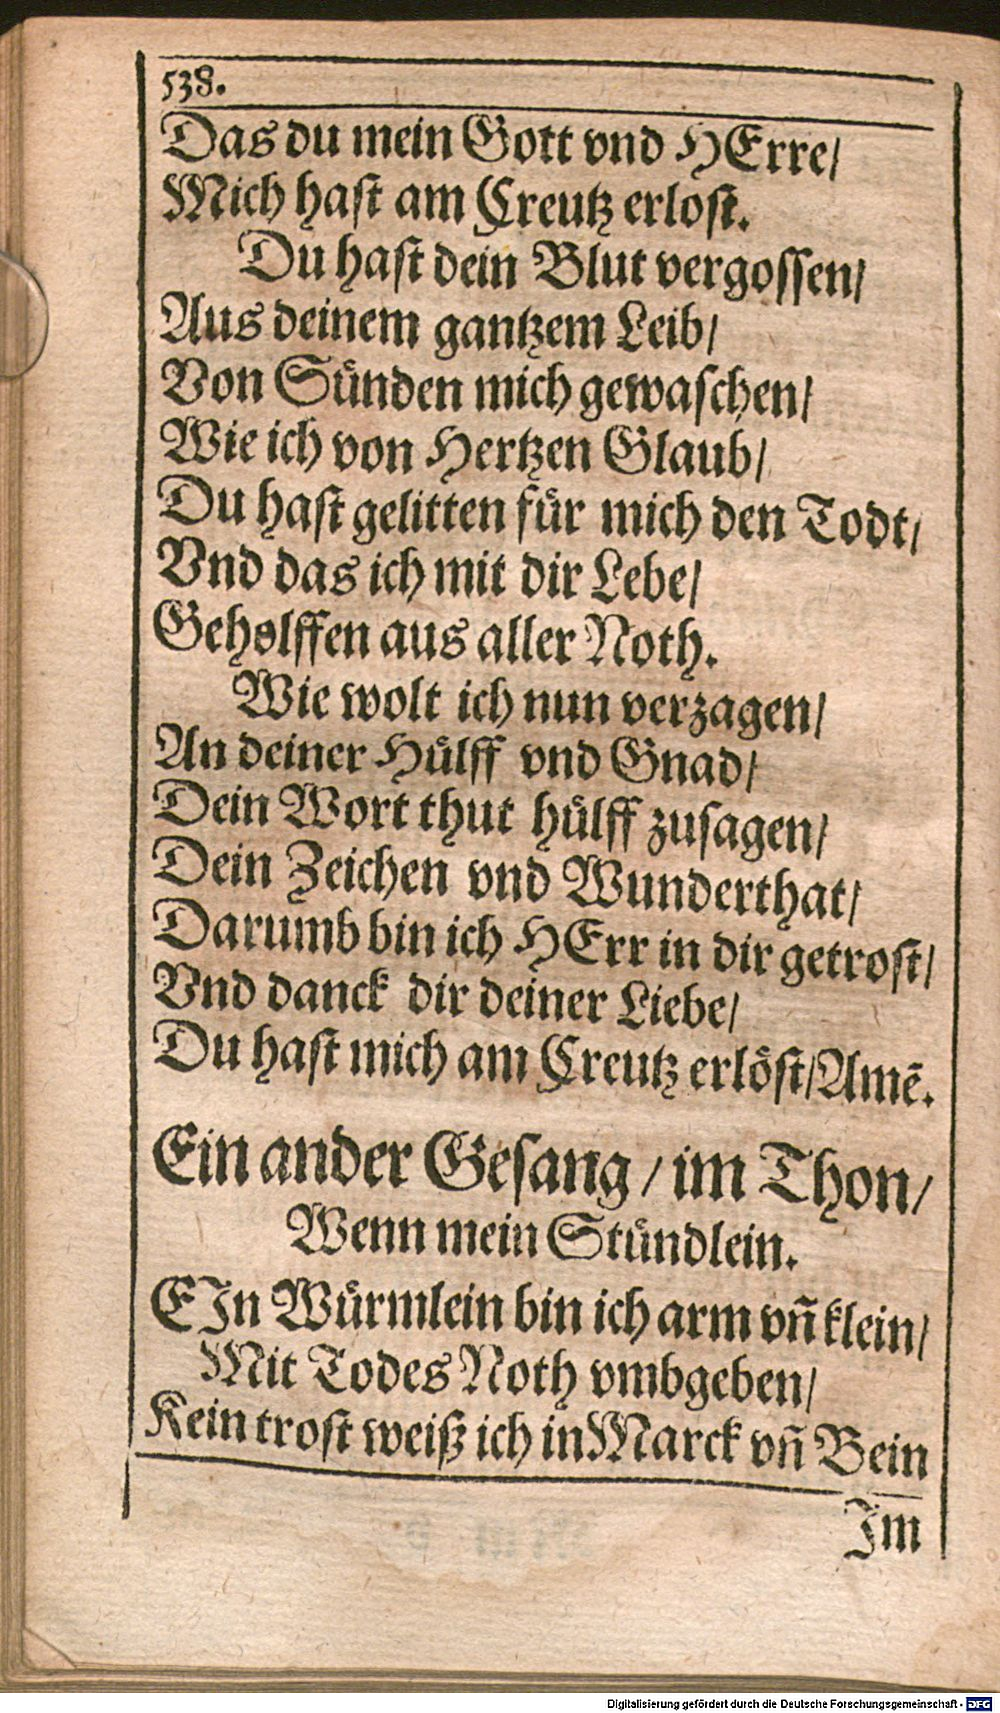 538.
Das du mein Gott vnd HErre/
Mich hast am Creutz erlost.
Du hast dein Blut vergossen/
Aus deinem gantzem Leib/
Von Sünden mich gewaschen/
Wie ich von Hertzen Glaub/
Du hast gelitten für mich den Todt/
Vnd das ich mit dir Lebe/
Geholffen aus aller Noth.
Wie wolt ich nun verzagen/
An deiner Hülff vnd Gnad/
Dein Wort thut hülff zusagen/
Dein Zeichen vnd Wunderthat/
Darumb bin ich HErr in dir getrost/
Vnd danck dir deiner Liebe/
Du hast mich am Creutz erlöst/Amē.
Ein ander Gesang / im Thon/
Wenn mein Stündlein.
EIn Würmlein bin ich arm vn̄ klein/
Mit Todes Noth vmbgeben/
Kein trost weiß ich in Marck vn̄ Bein
Im
Digitalisierung gefördert durch die Deutsche Forschungsgemeinschaft - DFG